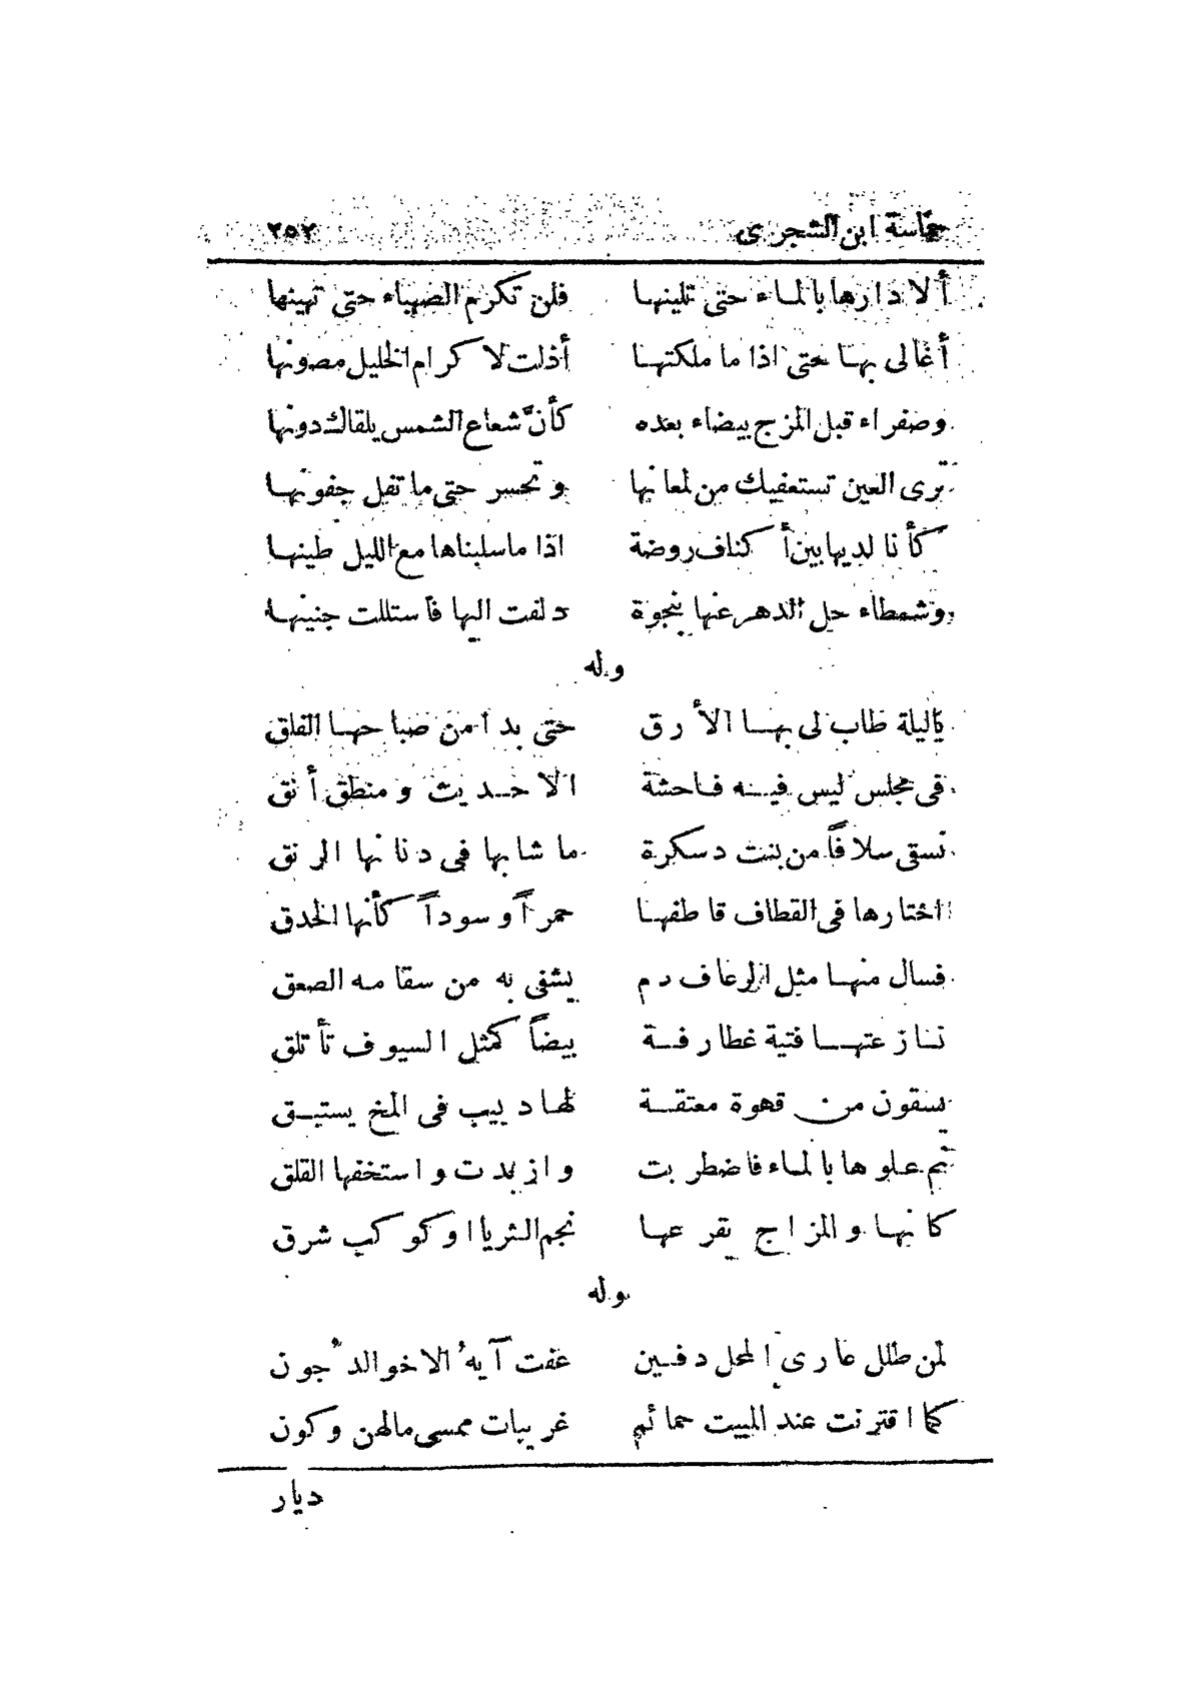 حماسة ابن الشجرى ٢٥٢
ألا دارها بالماء حتى تلينها فلن تكرم الصهباء حتى تهينها
أغالى بها حتى اذا ما ملكتها أذلت لاكرام الخليل مصونها
وصفراء قبل المزج بيضاء بعده كأنّ شعاع الشمس يلقاك دونها
ترى العين تستعفيك من لمعانها وتحسر حتى ما تقل جفونها
كأنا لديها بين أكناف روضة اذا ما سلبناها مع الليل طينها
وشمطاء حل الدهر عنها بنجوة دلفت اليها فاستللت جنينها
وله
ياليلة طاب لى بها الأرق حتى بدا من صباحها الفلق
فى مجلس ليس فيه فاحشة الا حديث ومنطق أنق
نسقى سلافاً من بنت دسكرة ما شابها فى دنانها الرنق
اختارها فى القطاف قاطفها حمراً وسوداً كأنها الحدق
فسال منها مثل الرعاف دم يشفى به من سقامه الصعق
نازعتها فتية غطارفة بيضاً كمثل السيوف تأتلق
يسقون من قهوة معتقة لها دبيب فى المخ يستبق
ثم علوها بالماء فاضطربت وازبدت واستخفها القلق
كانها والمزاج يقرعها نجم الثريا اوكوكب شرق
وله
لمن طلل عارى المحل دفين عفت آيهُ الاخوالدُ جون
كما اقترنت عند المبيت حمائم غريبات ممسى مالهن وكون
ديار